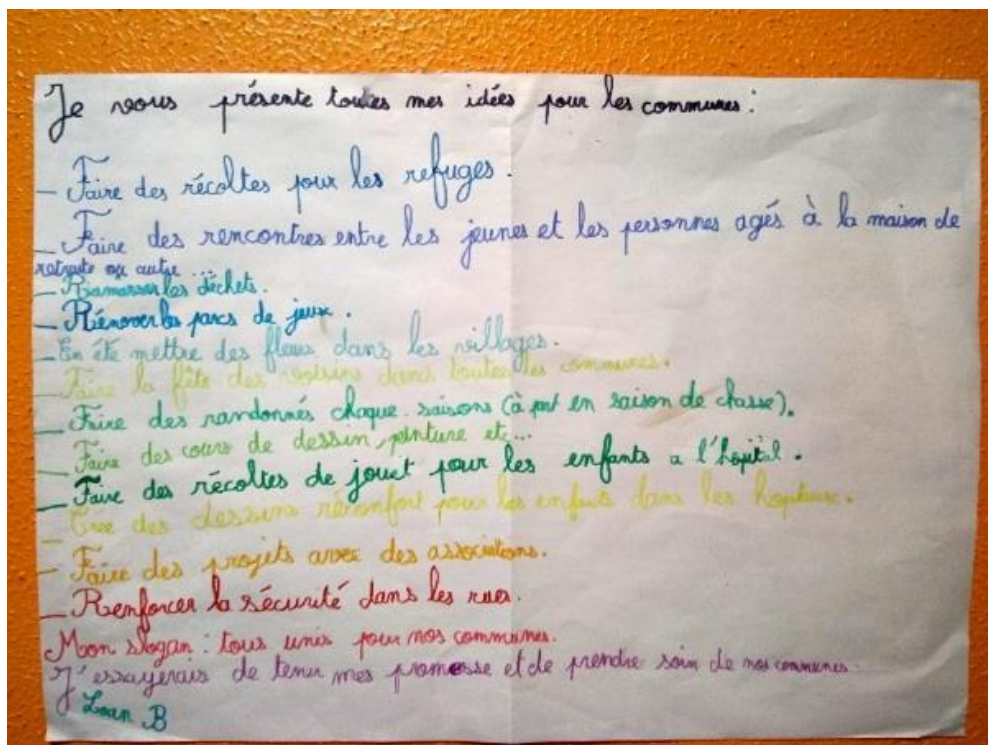 Je vous présente toutes mes idées pour les communes :
- Faire des récoltes pour les refuges.
- Faire des rencontres entre les jeunes et les personnes agés à la maison de
retraite ou autre ...
- Ramasser les déchets.
- Rénover les parcs de jeux.
- En été mettre des fleurs dans les villages.
- Faire la fête des voisins dans toutes les communes.
- Faire des randonnés chaque saisons (à part en saison de chasse).
- Faire des cours de dessin, peinture etc...
- Faire des récoltes de jouet pour les enfants a l'hôpital.
- Cree des dessins réconfort pour les enfants dans les hopitaux.
- Faire des projets avec des associations.
- Renforcer la sécurité dans les rues.
Mon slogan : tous unis pour nos communes.
J'essayerais de tenir mes promesse et de prendre soin de nos communes.
Loan B